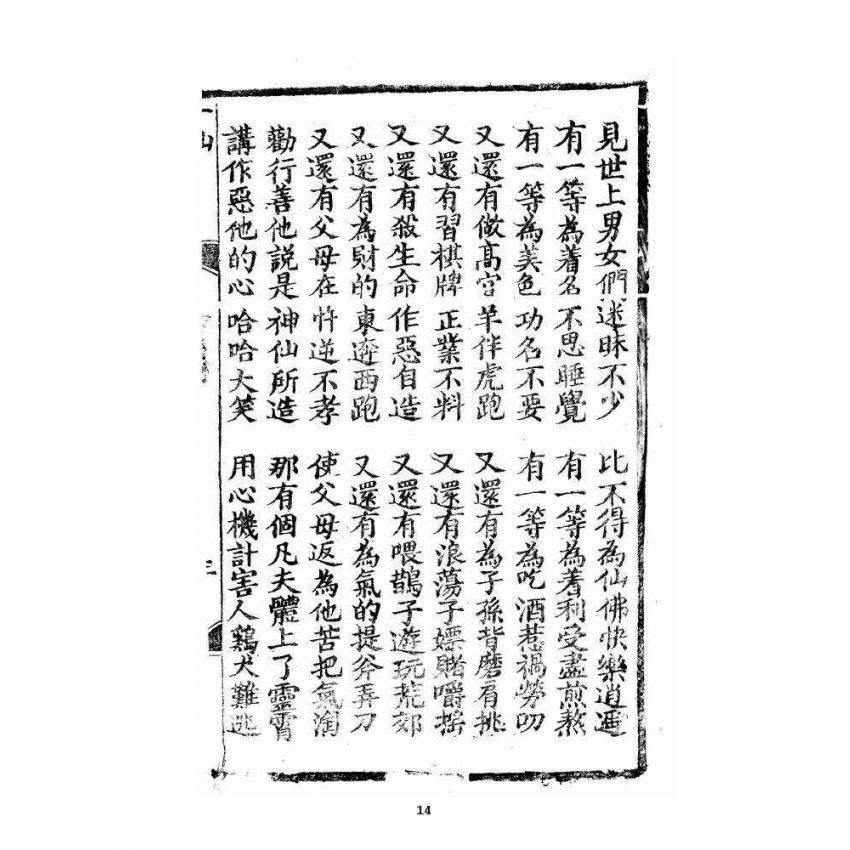 見世上男女們迷昧不少　比不得為仙佛快樂逍遥
有一等為着名不思睡覺　有一等為着利受盡煎熬
有一等為美色功名不要　有一等為吃酒惹禍勞叨
又還有做高官羊伴虎跑　又還有為子孫背磨肩挑
又還有習棋牌正業不料　又還有浪蕩子嫖賭嚼搖
又還有殺生命作惡自造　又還有喂鵲子遊玩荒郊
又還有為財的東遊西跑　又還有為氣的提斧弄刀
又還有父母在忤逆不孝　使父母返為他苦把氣淘
勸行善他說是神仙所造　那有個凡夫體上了靈霄
講作惡他的心哈哈大笑　用心機計害人鷄犬難逃
三
14